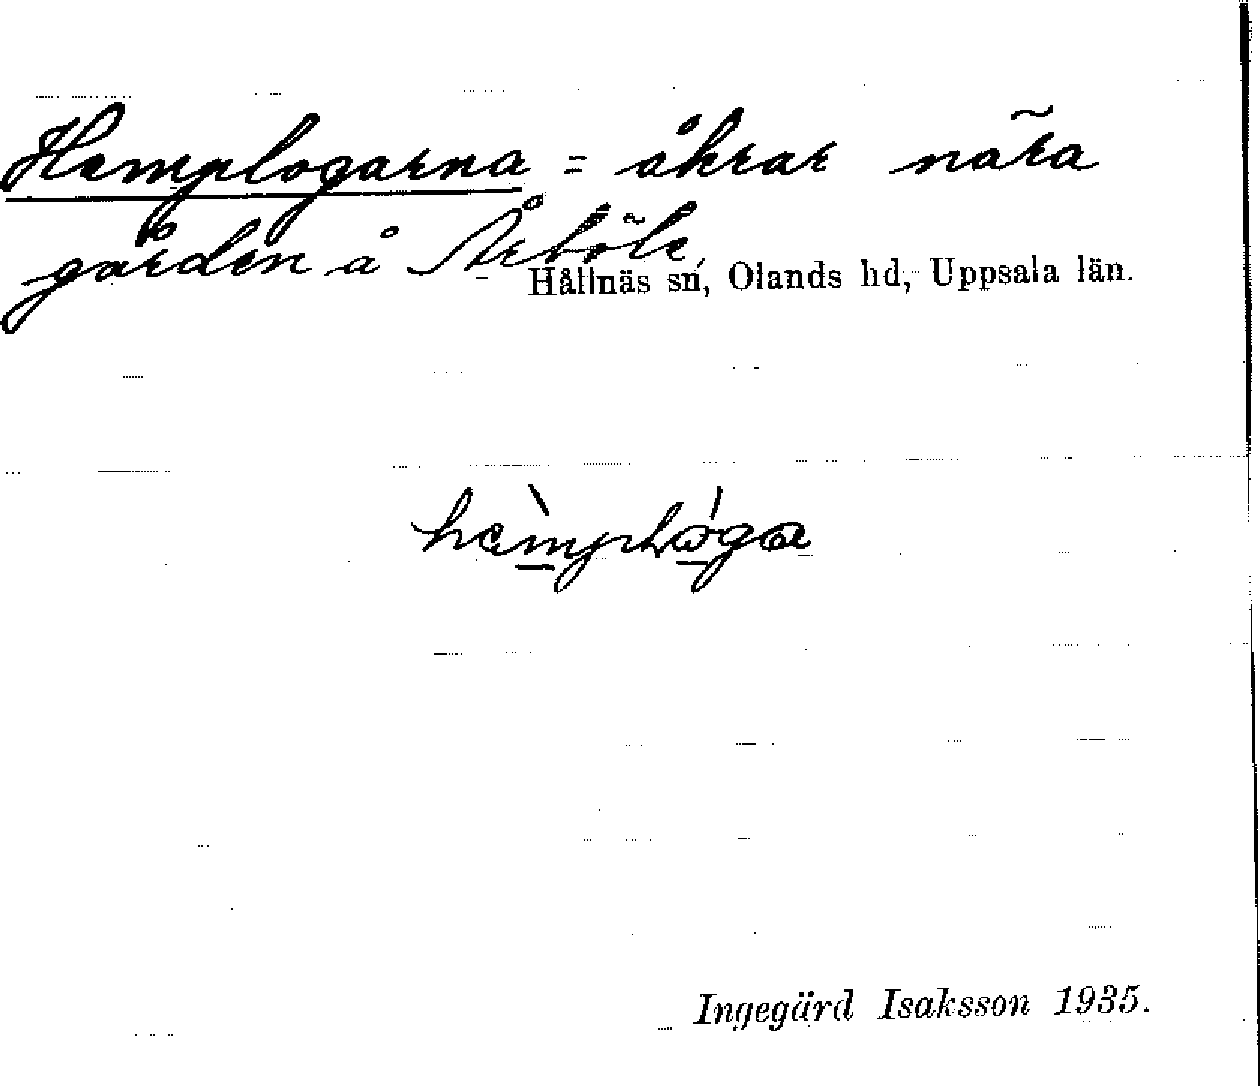 Hemplogarna = åkrar nära
gården å Årböle,
Hållnäs sn, Olands hd, Uppsala län.
Ingegärd Isaksson 1935.